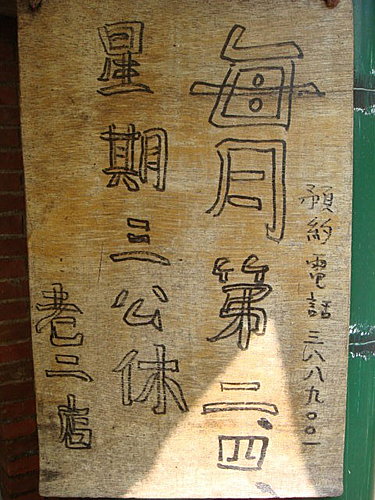 預約電話三八八九〇〇一
每月第二、四、
星期三公休
巷二店